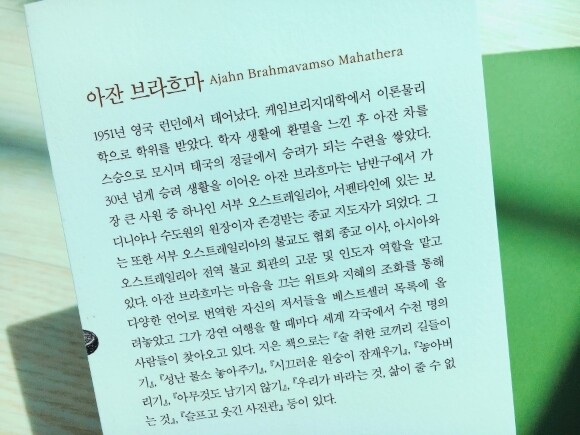 아잔 브라흐마 Ajahn Brahmavamso Mahathera
1951년 영국 런던에서 태어났다. 케임브리지대학에서 이론물리
학으로 학위를 받았다. 학자 생활에 환멸을 느낀 후 아잔 차를
스승으로 모시며 태국의 정글에서 승려가 되는 수련을 쌓았다.
30년 넘게 승려 생활을 이어온 아잔 브라흐마는 남반구에서 가
장 큰 사원 중 하나인 서부 오스트레일리아, 서펜타인에 있는 보
디니야나 수도원의 원장이자 존경받는 종교 지도자가 되었다. 그
는 또한 서부 오스트레일리아의 불교도 협회 종교 이사, 아시아와
오스트레일리아 전역 불교 회관의 고문 및 인도자 역할을 맡고
있다. 아잔 브라흐마는 마음을 끄는 위트와 지혜의 조화를 통해
다양한 언어로 번역한 자신의 저서들을 베스트셀러 목록에 올
려놓았고 그가 강연 여행을 할 때마다 세계 각국에서 수천 명의
사람들이 찾아오고 있다. 지은 책으로는 『술 취한 코끼리 길들이
기』, 『성난 물소 놓아주기』, 『시끄러운 원숭이 잠재우기』, 『놓아버
리기』, 『아무것도 남기지 않기』, 『우리가 바라는 것, 삶이 줄 수 없
는 것』, 『슬프고 웃긴 사진관』 등이 있다.